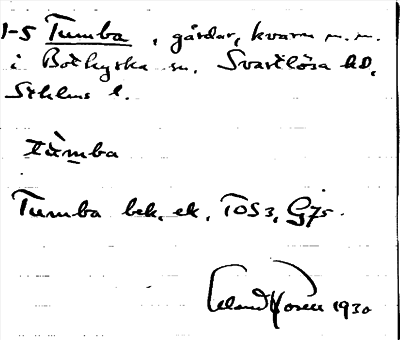 1-5 Tumba, gårdar, kvarn m.m.
i Botkyrka sn. Svartlösa hd,
Sthlms l.
tùmba
Tumba bek. ek. TOS3, G75.
1930